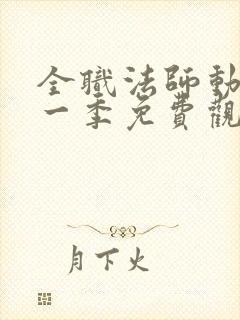 全職法師動
一季免費觀
月下火